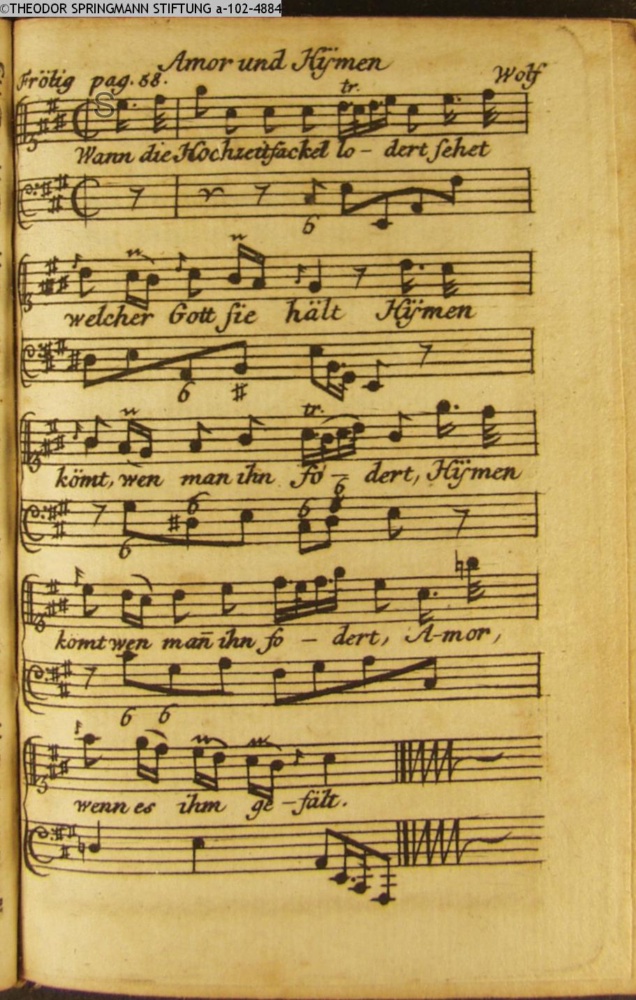 ©THEODOR SPRINGMANN STIFTUNG a-102-4884
Amor und Hÿmen
Frötig pag. 58. Wolf
tr.
Wann die Hochzeitfackel lo - dert sehet
6
welcher Gott sie hält Hÿmen
6 #
tr.
kömt, wen man ihn fo - dert, Hÿmen
6 6 6 6
komt wen man̄ ihn fo - dert, A-mor,
6 6
wenn es ihm ge - fält.